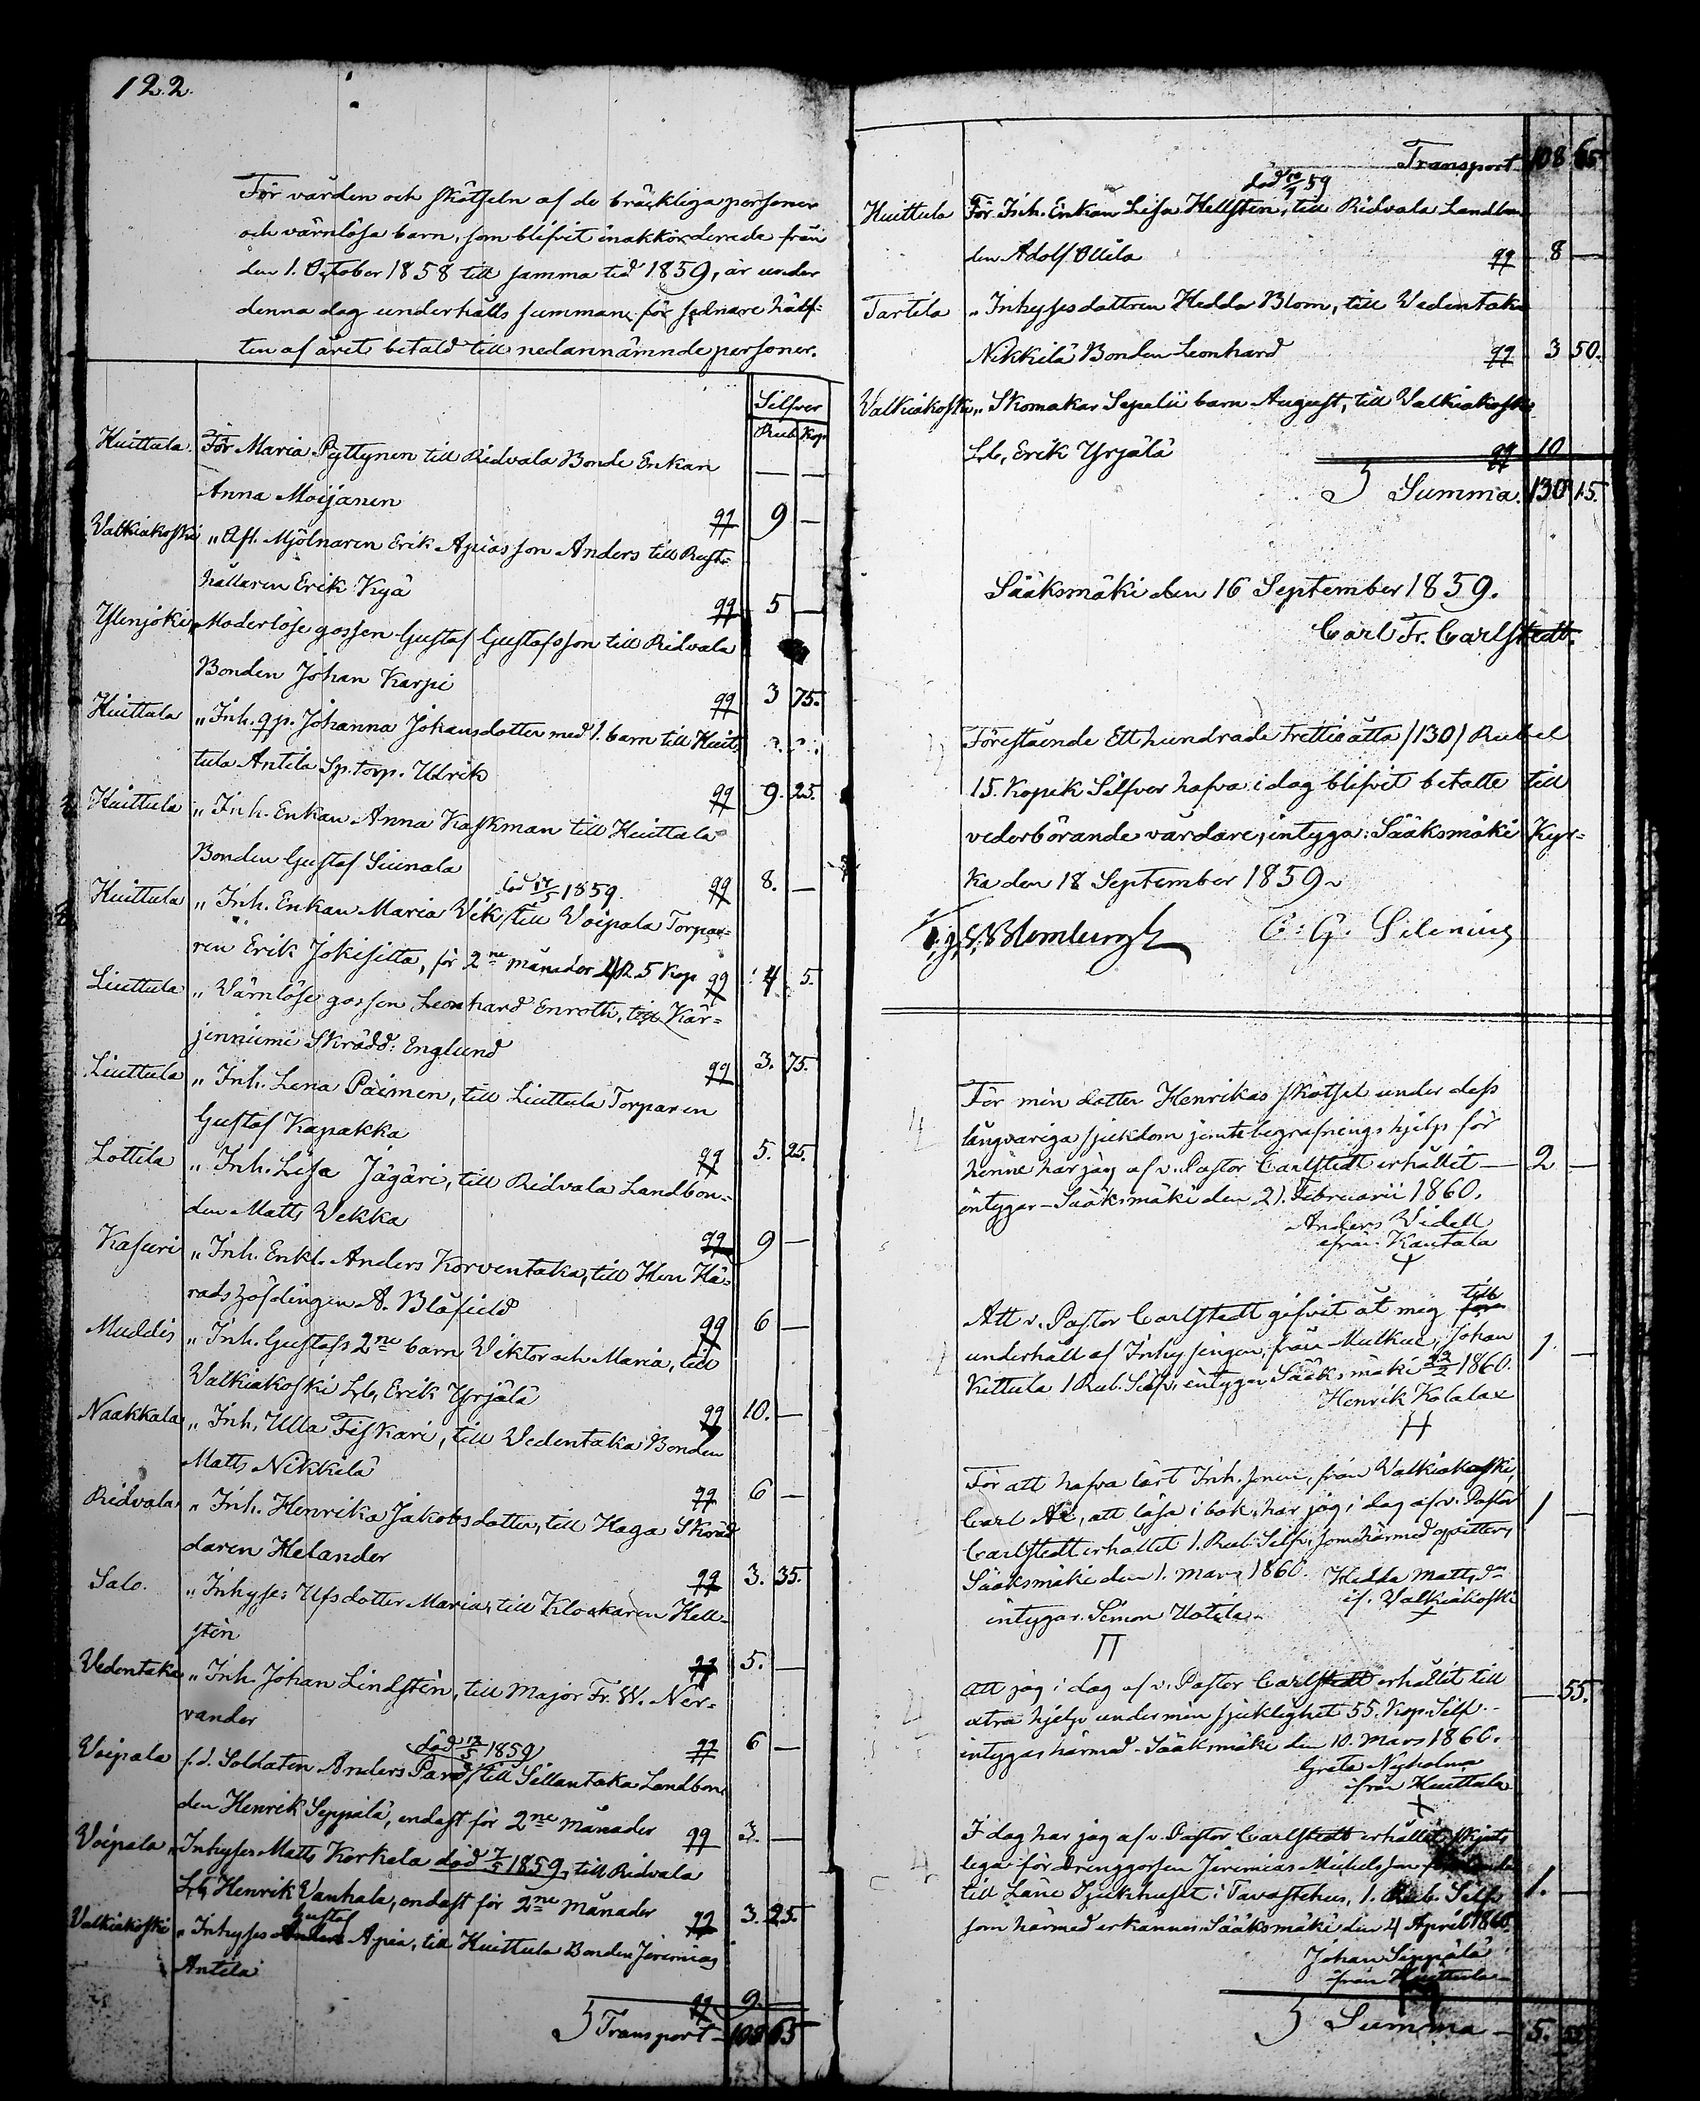 122.
För vården och skötseln af de bräckliga personer
och värnlösa barn, som blifvit inakkorderade från
den 1. October 1858 till samma tid 1859, är under
denna dag underhålls summan för sednare hälf-
ten af året betald till nedannämnde personer.
Silfver
Rub. Kop.
Huittula För Maria Pyttynen till Ridvala Bonde Enkan
Anna Moijanen qq 9 —
Valkiakoski „ Afl. Mjölnaren Erik Apias son Anders till Rust-
hållaren Erik Kyä qq 5 —
Ylenjoki „ Moderlöse gossen Gustaf Gustafsson till Ridvala
Bonden Johan Karpi qq 3 75.
Huittula „ Inh. qp. Johanna Johansdotter med 1. barn till Huit-
tula Antila Sp. torp. Udrik qq 9. 25.
Huittula „ Inh. Enkan Anna Kaskman till Huittula
Bonden Gustaf Siunala qq 8. —
död 17/5 1859.
Huittula „ Inh. Enkan Maria Vik, till Voipala Torpa-
ren Erik Jokisilta, för 2ne månader 4 R. 5 Kop qq 4 5.
Liuttula „ Värnlöse gossen Leonhard Enroth, till Kär-
jenniemi Skrädd: Englund qq 3. 75.
Liuttula „ Inh. Lena Päimen, till Liuttula Torparen
Gustaf Kapakka qq 5. 25.
Lottila „ Inh. Lisa Jägäri, till Ridvala Landbon-
den Matts Vekka qq 9 —
Kasuri „ Inh. Enkl. Anders Korventaka, till Herr Hä-
radshöfdingen A. Blåfield qq 6 —
Muddis „ Inh. Gustafs 2ne barn Viktor och Maria, till
Valkiakoski Lb. Erik Yrjälä qq 10. —
Naakkala „ Inh. Ulla Fiskari, till Vedentaka Bonden
Matts Nikkilä qq 6 —
Ridvala „ Inh. Henrika Jakobsdotter, till Haga Skräd
daren Helander qq 3. 35.
Salo. „ Inhyses Ulfsdotter Maria, till Klockaren Hell-
sten qq 5. —
Vedentaka „ Inh. Johan Lindstén, till Major Fr. W. Ner-
vander qq 6 —
död 12/5 1859
Voipala f. d. Soldaten Anders Par, till Sillantaka Landbon-
den Henrik Seppälä, endast för 2ne månader qq 3. —
Voipala „ Inhyses Matts Korkela död 7/5 1859, till Ridvala
Lb. Henrik Vanhala, endast för 2ne månader qq 3. 25.
Gustaf
Valkiakoski „ Inhyses Anders Apia, till Huittula Bonden Jeremias
Antila qq 9.
Transport 108 65
Transport 108 65
död 10/7 59
Huittula För Inh. Enkan Lisa Hellsten, till Ridvala Landbon-
den Adolf Ollila qq 8 —
Tarttila „ Inhysesdottren Hedda Blom, till Vedentaka
Nikkilä Bonden Leonhard qq 3 50.
Valkiakoski „ Skomakar Sepelii barn August, till Valkiakoski
Lb. Erik Yrjälä qq 10
Summa. 130 15.
Sääksmäki den 16 September 1859.
Carl Fr. Carlstedt.
Förestående Ett hundrade trettio åtta /130/ Rubel
15. Kopek Silfver hafva i dag blifvit betalte till
vederbörande vårdare, intyga: Sääksmäki Kyr-
ka den 18 September 1859.
Blomburgh C: G: Silenius
För min dotter Henrikas skötsel under dess
långvariga sjukdom jemte begrafnings hjelp för
henne har jag af v. Pastor Carlstedt erhållit — 2 —
intygar — Sääksmäki den 21. Februarii 1860.
Anders Videll
från Kantala
Att v. Pastor Carlstedt gifvit åt mig till
underhåll af Inhysingen från Mulkue, Johan 1. —
Kettula 1 Rub. Silf., intygar, Sääksmäki 22/2 1860.
Henrik Kolalax
För att hafva lärt Inh. sonen, från Valkiakoski,
Carl, att läsa i bok, har jag i dag af v. Pastor 1 —
Carlstedt erhållit 1. Rub. Silfv., som härmed qvitteras
Sääksmäki den 1. Mars 1860. Hedda Matts dr
intygar. Simon Uotila. if. Valkiakoski
Att jag i dag af v. Pastor Carlstedt erhållit till
extra hjelp under min sjuklighet 55. Kop. Silf. — 55.
intygas härmed. Sääksmäki den 10. Mars 1860.
Greta Nyholm
ifrån Huittula
I dag har jag af v. Pastor Carlstedt erhållit skjuts
lega för Drenggossen Jeremias Michelsson
till Läne Sjukhuset i Tavastehus, 1. Rub. Silf. 1. —
som härmed erkännes. Sääksmäki den 4 April 1860.
Johan Seppälä
från Huittula
Summa — 5. 55